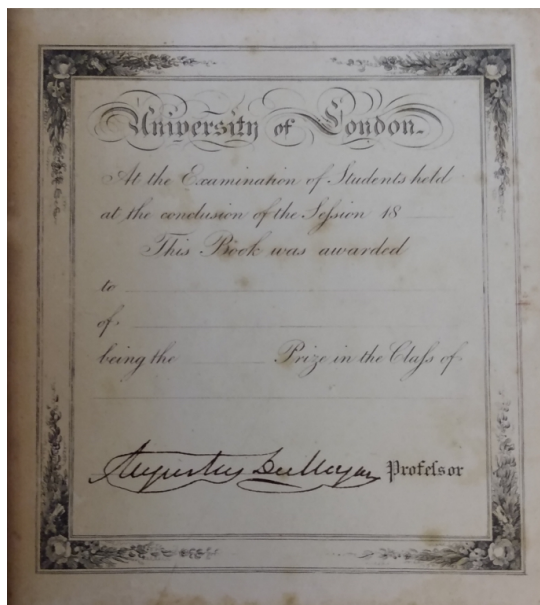 University of London.
At the Examination of Students held
at the conclusion of the Seſsion 18
This Book was awarded
to
of
being the Prize in the Claſs of
Augustus De Morgan Profeſsor